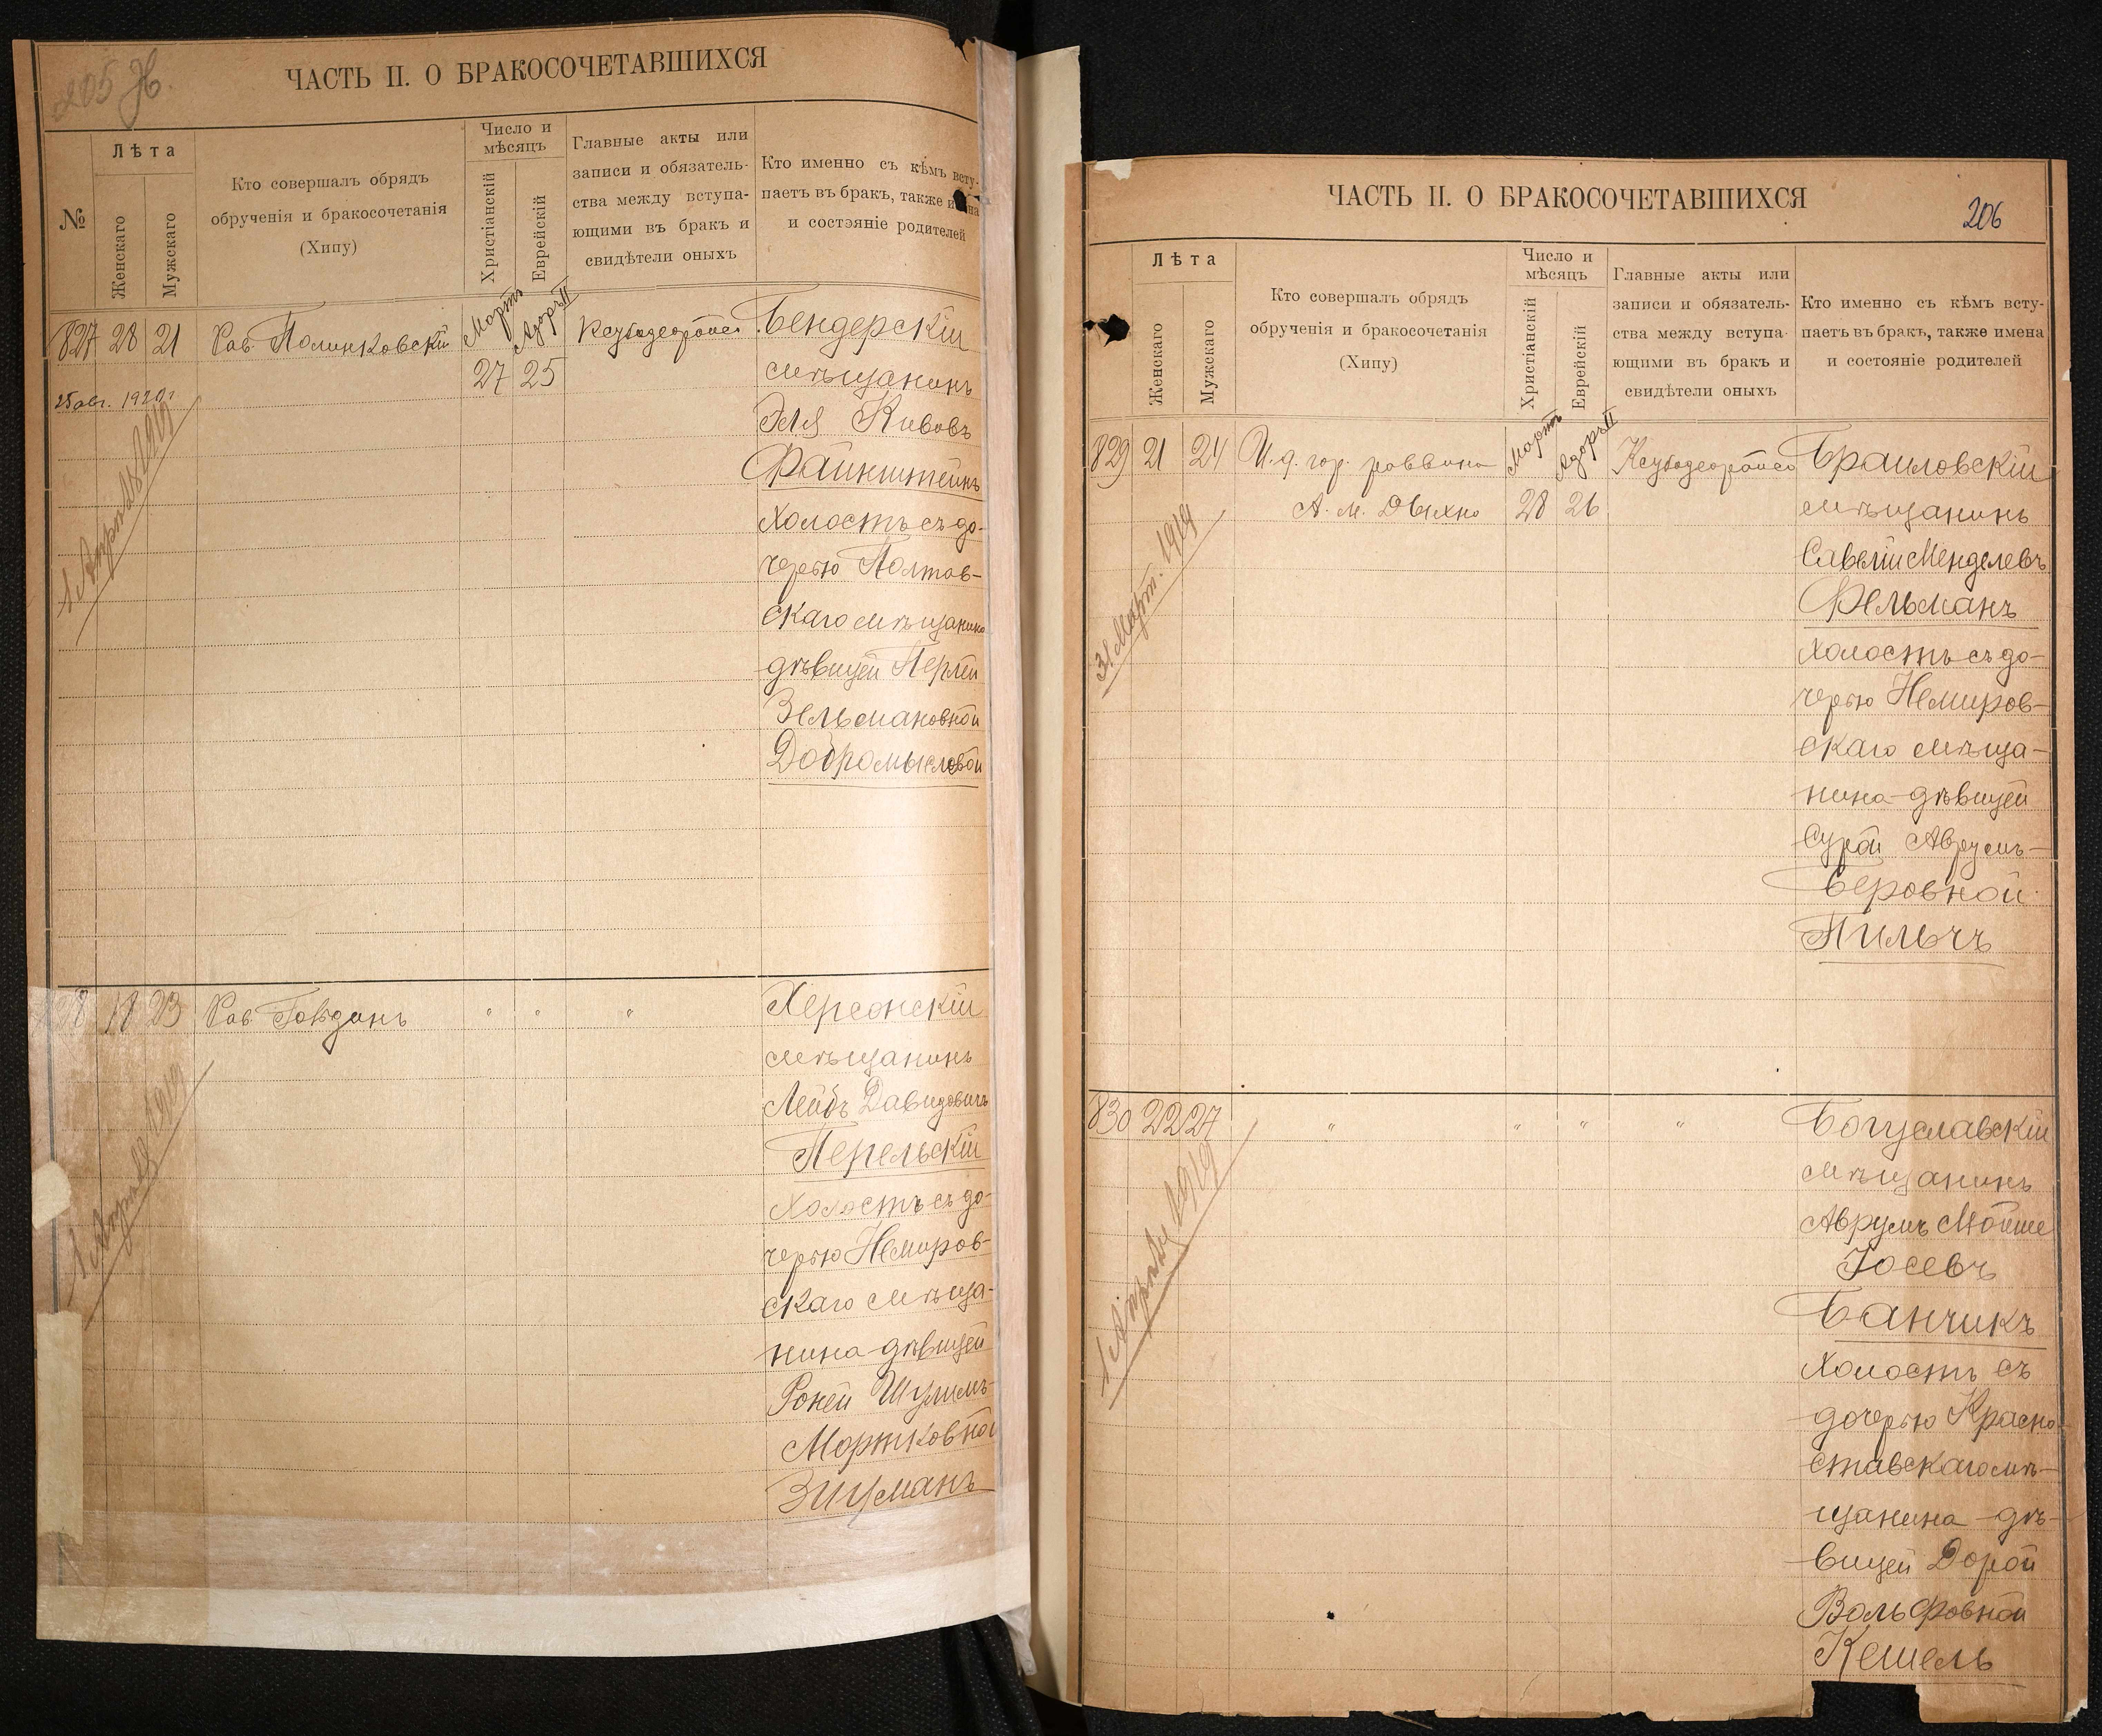 205 Н.
ЧАСТЬ II. О БРАКОСОЧЕТАВШИХСЯ
№
Лѣта
Женскаго
Мужскаго
Кто совершалъ обрядъ
обрученія и бракосочетанія
(Хипу)
Число и
мѣсяцъ
Христіанскій
Еврейскій
Главные акты или
записи и обязатель-
ства между вступа-
ющими въ бракъ и
свидѣтели оныхъ
Кто именно съ кѣмъ всту-
паетъ въ бракъ, также имена
и состэяніе родителей
Мартъ
Адоръ II
827 28 21 Рав. Полинковскій 27 25
25 авг. 1920 г
1 Апрѣля 1919
Бендерскій
мѣщанинъ
Эля Кивовъ
Файнштейнъ
холостъ съ до-
черью Полтав-
скаго мѣщанина
дѣвицей Перлей
Зельмановной
Добромысловой
828 18 23 Рав. Гойданъ " " "
1 Апрѣля 1919
Херсонскій
мѣщанинъ
Лейбъ Давидовичъ
Перельскій
холостъ съ до-
черью Немиров-
скаго мѣща-
нина дѣвицей
Рохей Шулимъ-
Мортковной
Зицманъ
ЧАСТЬ II. О БРАКОСОЧЕТАВШИХСЯ
206
Лѣта
Женскаго
Мужскаго
Кто совершалъ обрядъ
обрученія и бракосочетанія
(Хипу)
Число и
мѣсяцъ
Христіанскій
Еврейскій
Главные акты или
записи и обязатель-
ства между вступа-
ющими въ бракъ и
свидѣтели оныхъ
Кто именно съ кѣмъ всту-
паетъ въ бракъ, также имена
и состояніе родителей
Мартъ
Адоръ II
829 21 24 И. д. гор. раввина
А. М. Двихно 28 26
31 Март. 1919
Браиловскій
мѣщанинъ
Савелій Менделевъ
Фельманъ
холостъ съ до-
черью Немиров-
скаго мѣща-
нина дѣвицей
Сурой Аврумъ-
Беровной
Пильчъ
830 22 27 " " " "
1 Апрѣля 1919
Богуславскій
мѣщанинъ
Аврумъ Мойше
Іосевъ
Банчикъ
холостъ съ
дочерью Красно-
ставскаго мѣ-
щанина дѣ-
вицей Дорой
Вольфовной
Кешель